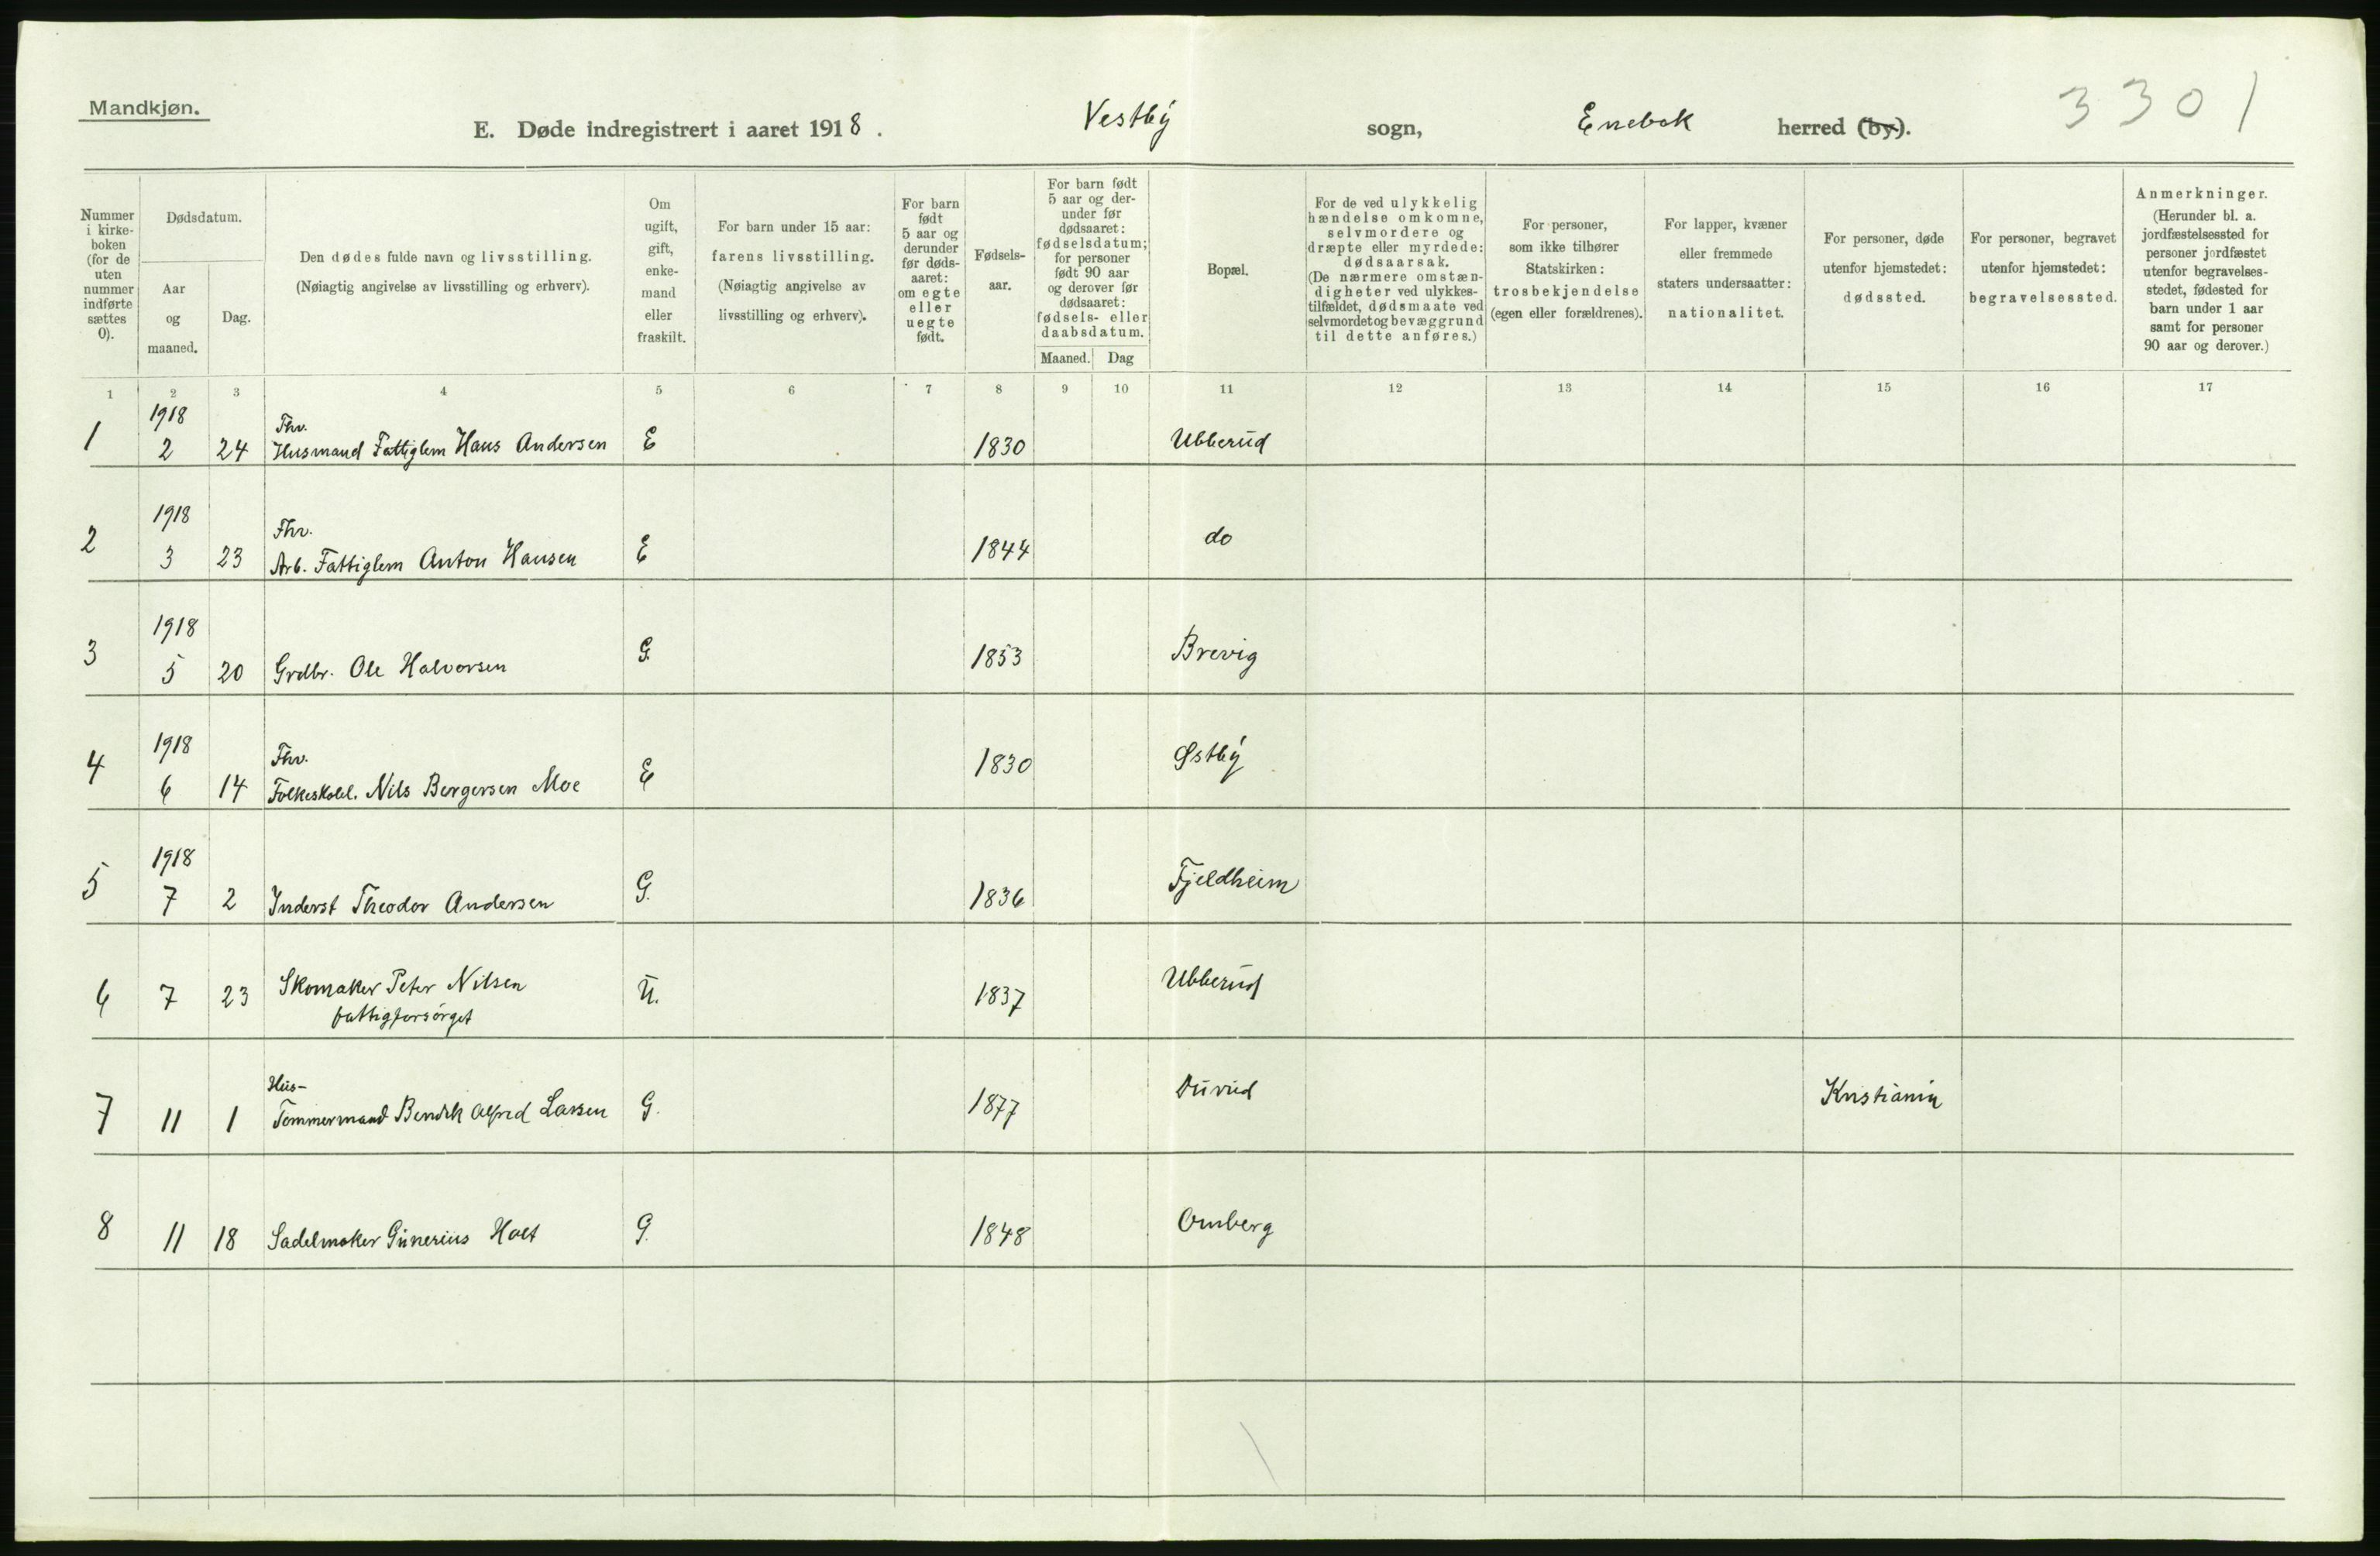 Mandkjøn.
E. Døde indregistrert i aaret 1918. Vestby sogn, Enebak herred (by).
3301
Nummer i kirke- boken (for de uten nummer indførte sættes 0).
Dødsdatum.
Aar og maaned.
Dag.
Den dødes fulde navn og livsstilling.
(Nøiagtig angivelse av livsstilling og erhverv).
Om ugift, gift, enke- mand eller fraskilt.
For barn under 15 aar: farens livsstilling.
(Nøiagtig angivelse av livsstilling og erhverv).
For barn født 5 aar og derunder før døds- aaret: om egte eller uegte født.
Fødsels- aar.
For barn født 5 aar og der- under før dødsaaret: fødselsdatum; for personer født 90 aar og derover før dødsaaret: fødsels- eller daabsdatum.
Maaned. Dag
Bopæl.
For de ved ulykkelig hændelse omkomne, selvmordere og dræpte eller myrdede: dødsaarsak.
(De nærmere omstæn- digheter ved ulykkes- tilfældet, dødsmaate ved selvmordet og bevæggrund til dette anføres.)
For personer, som ikke tilhører Statskirken: trosbekjendelse (egen eller forældrenes).
For lapper, kvæner eller fremmede staters undersaatter: nationalitet.
For personer, døde utenfor hjemstedet: dødssted.
For personer, begravet utenfor hjemstedet: begravelsessted.
Anmerkninger.
(Herunder bl. a. jordfæstelsessted for personer jordfæstet utenfor begravelses- stedet, fødested for barn under 1 aar samt for personer 90 aar og derover.)
1 2 3 4 5 6 7 8 9 10 11 12 13 14 15 16 17
1918 Fhv.
1 2 24 Husmand Fattiglem Hans Andersen E 1830 Ubberud
1918 Fhv.
2 3 23 Arb. Fattiglem Anton Hansen E 1844 do
1918
3 5 20 Grdbr. Ole Halvorsen G. 1853 Brevig
1918 Fhv.
4 6 14 Folkeskolel. Nils Bergersen Moe E 1830 Østby
1918
5 7 2 Inderst Theodor Andersen G. 1836 Fjeldheim
6 7 23 Skomaker Peter Nilsen U. 1837 Ubberud
fattigforsørget
Hus-
7 11 1 Tømmermand Bendik Alfred Larsen G. 1877 Durud Kristiania
8 11 18 Sadelmaker Gunerius Holt G. 1848 Omberg